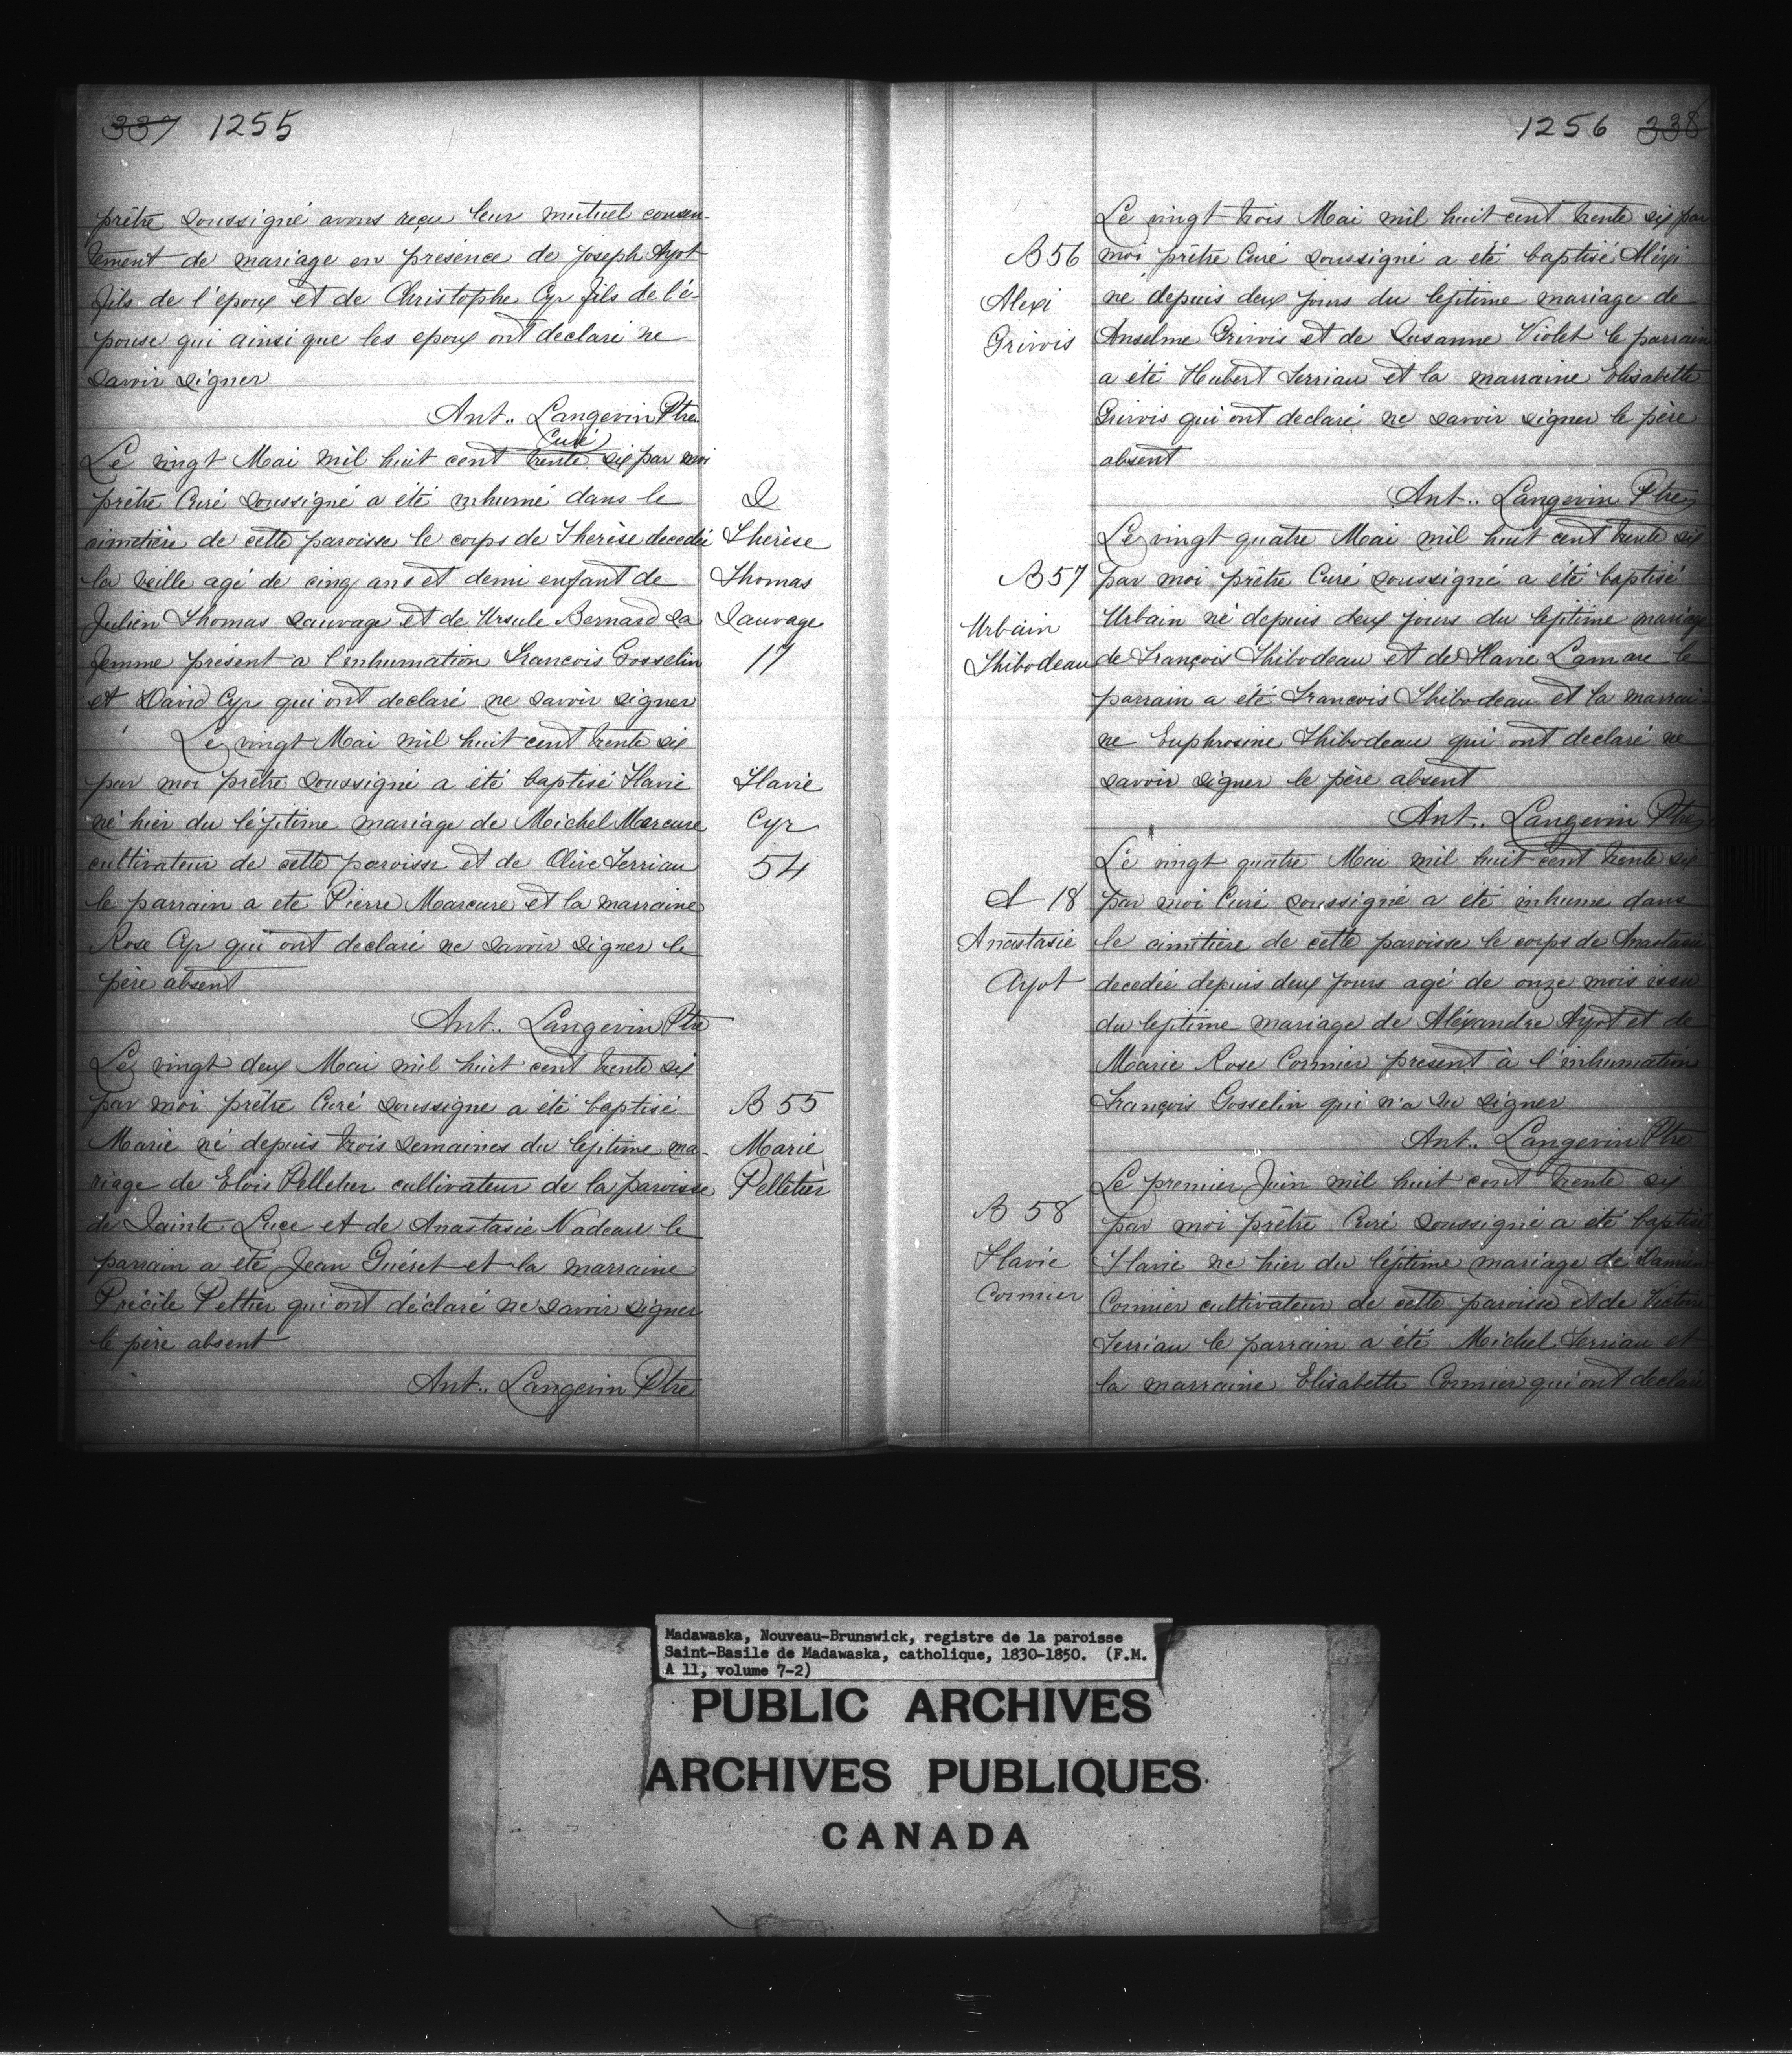 337 1255
prêtre soussigné avons reçu leur mutuel consen-
tement de mariage en présence de Joseph Ayot
fils de l'epoux et de Christophe Cyr fils de l'é-
pouse qui ainsi que les epoux ont declaré ne
savoir signer
Ant.. Langevin Ptre
Curé
Le vingt Mai mil huit cent trente six par moi
prêtre Curé soussigné a été inhumé dans le
cimetière de cette paroisse le corps de Therèse decedée
la veille agé de cinq ans et demi enfant de
Julien Thomas sauvage et de Ursule Bernard sa
femme présent a l'inhumation Francois Gosselin
et David Cyr qui ont declaré ne savoir signer
S
Thèrèse
Thomas
Sauvage
17
Le vingt Mai mil huit cent trente six
par moi prêtre soussigné a été baptisé Flavie
né hier du légitime mariage de Michel Marcure
cultivateur de cette paroisse et de Olive Terriau
le parrain a ete Pierre Marcure et la marraine
Rose Cyr qui ont declaré ne savoir signer le
père absent
Ant.. Langevin Ptre
Flavie
Cyr
54
Le vingt deux Mai mil huit cent trente six
par moi prêtre Curé soussigne a été baptisé
Marie né depuis trois semaines du legitime ma-
riage de Elois Pelletier cultivateur de la paroisse
de Sainte Luce et de Anastasie Nadeau le
parrain a eté Jean Guéret et la marraine
Précile Peltier qui ont déclaré ne savoir signer
le père absent
Ant.. Langevin Ptre
B 55
Marie
Pelletier
1256 338
Le vingt trois Mai mil huit cent trente six par
moi prêtre Curé soussigné a été baptisé Aléxi
né depuis deux jours du legitime mariage de
Anselme Grivois et de Susanne Violet le parrain
a été Hubert Terriau et la marraine Elisabette
Grivois qui ont declaré ne savoir signer le père
absent
Ant.. Langevin Ptre
B 56
Alexi
Grivois
Le vingt quatre Mai mil huit cent trente six
par moi prêtre Curé soussigné a été baptisé
Urbain né depuis deux jours du legitime mariage
de François Thibodeau et de Flavie Lamare le
parrain a été Francois Thibodeau et la marrai-
ne Euphrosine Thibodeau qui ont declaré ne
savoir signer le père absent
Ant.. Langevin Ptre
B 57
Urbain
Thibodeau
Le vingt quatre Mai mil huit cent trente six
par moi Curé soussigné a été inhume dans
le cimetière de cette paroisse le corps de Anastasie
decedée depuis deux jours agé de onze mois issu
du legitime mariage de Aléxandre Ayot et de
Marie Rose Cormier present à l'inhumation
François Gosselin qui n'a su signer
Ant.. Langevin Ptre
S 18
Anastasie
Ayot
Le premier Juin mil huit cent trente six
par moi prêtre Curé soussigné a eté baptisé
Flavie né hier du légitime mariage de Damien
Cormier cultivateur de cette paroisse et de Victoire
Terriau le parrain a été Michel Terriau et
la marraine Elisabette Cormier qui ont declaré
B 58
Flavie
Cormier
Madawaska, Nouveau-Brunswick, registre de la paroisse
Saint-Basile de Madawaska, catholique, 1830-1850. (F.M.
A 11, volume 7-2)
PUBLIC ARCHIVES
ARCHIVES PUBLIQUES
CANADA